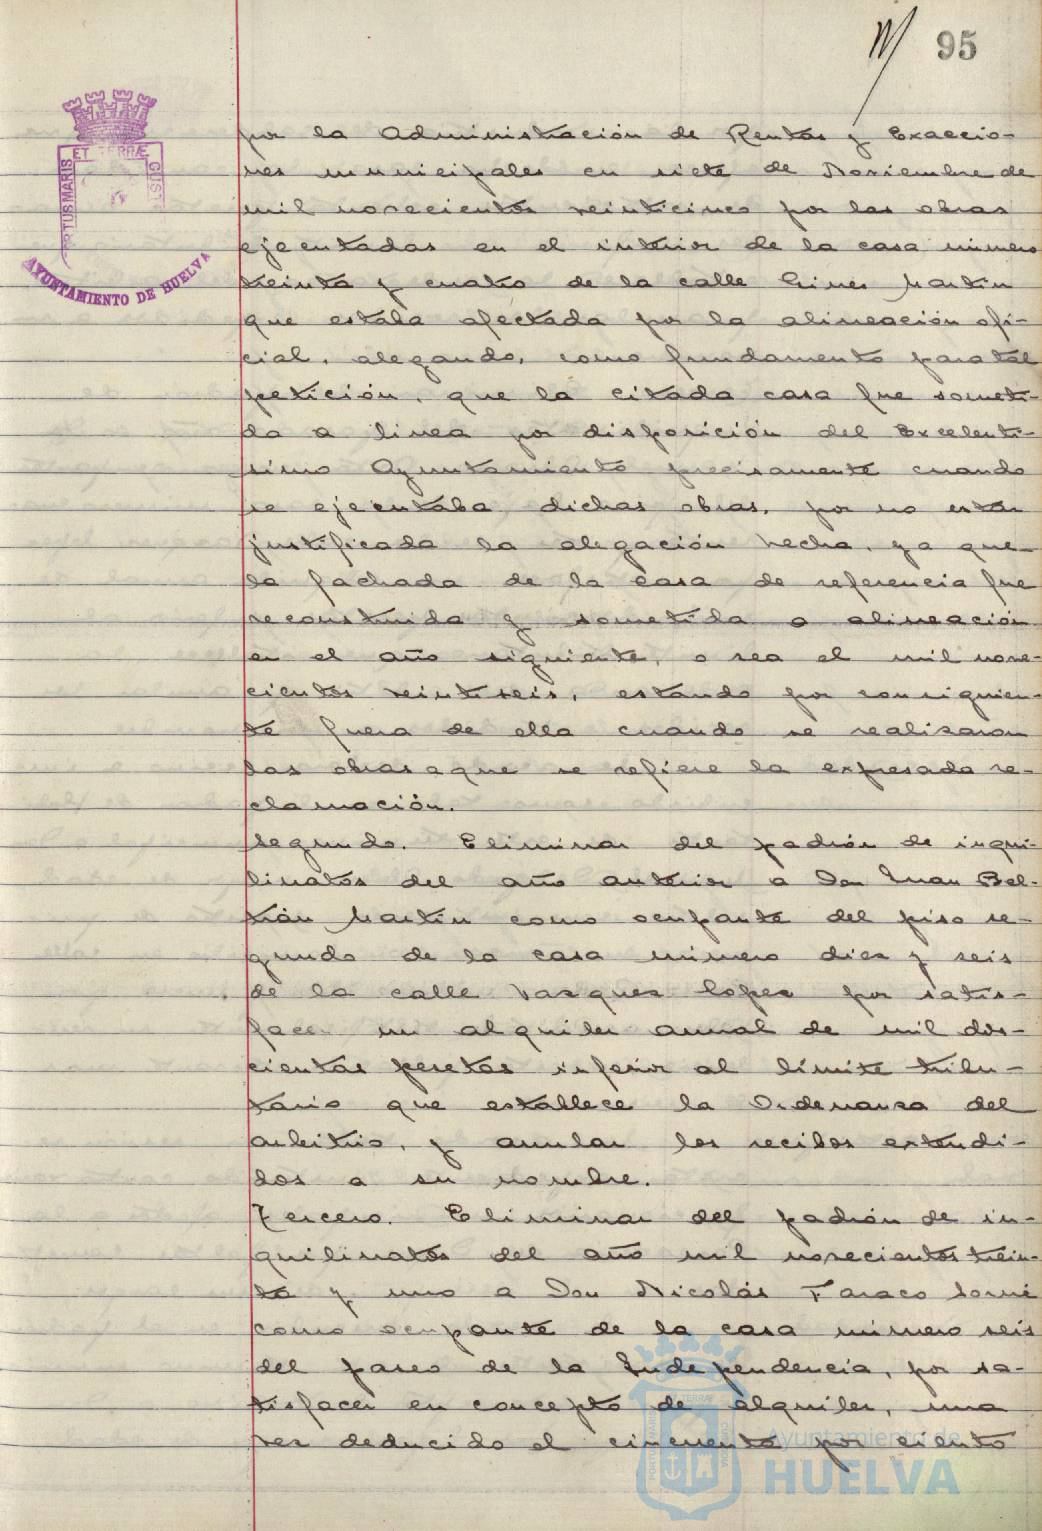 95
PORTUS MARIS ET TERRÆ CUSTODIA
AYUNTAMIENTO DE HUELVA
por la Administración de Rentas y Exaccio-
nes municipales en siete de Noviembre de
mil novecientos veinticinco por las obras
ejecutadas en el interior de la casa número
treinta y cuatro de la calle Ginés Martín
que estaba afectada por la alineación ofi-
cial, alegando, como fundamento para tal
petición, que la citada casa fue someti-
da a línea por disposición del Excelentí-
simo Ayuntamiento precisamente cuando
se ejecutaba dichas obras, por no estar
justificada la alegación hecha, ya que
la fachada de la casa de referencia fue
reconstruida y sometida a alineación
en el año siguiente, o sea el mil nove-
cientos veintiseis, estando por consiguien-
te fuera de ella cuando se realizaron
las obras a que se refiere la expresada re-
clamación.
Segundo. Eliminar del padrón de inqui-
linatos del año anterior a Don Juan Bel-
trán Martín como ocupante del piso se-
gundo de la casa número diez y seis
de la calle Vazquez Lopez por satis-
facer un alquiler annal de mil dos-
cientas pesetas inferior al límite tribu-
tario que establece la Ordenanza del
arbitrio, y anular los recibos extendi-
dos a su nombre.
Tercero. Eliminar del padrón de in-
quilinatos del año mil novecientos trein-
ta y uno a Don Nicolás Faraco
como ocupante de la casa número seis
del paseo de la Independencia, por sa-
tisfacer en concepto de alquiler, una
vez deducido el cincuenta por ciento
Ayuntamiento de
HUELVA